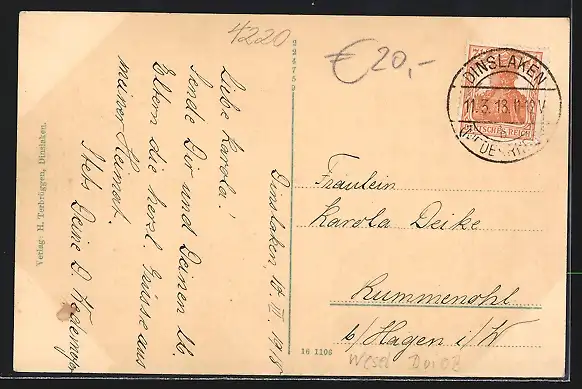 4220
€20,-
224750
Dinslaken, 10. II 1918
Liebe Karola!
Sende Dir und Deinen lb.
Eltern die herzl. Grüsse aus
meiner Heimat.
Stets Deine D.
Verlag: H. Terbrüggen, Dinslaken.
DINSLAKEN
11.3.18.11-12V
DEUTSCHES REICH
Fräulein
Karola Deike
Rummenohl
b/Hagen i/W
16 1106
Wesel